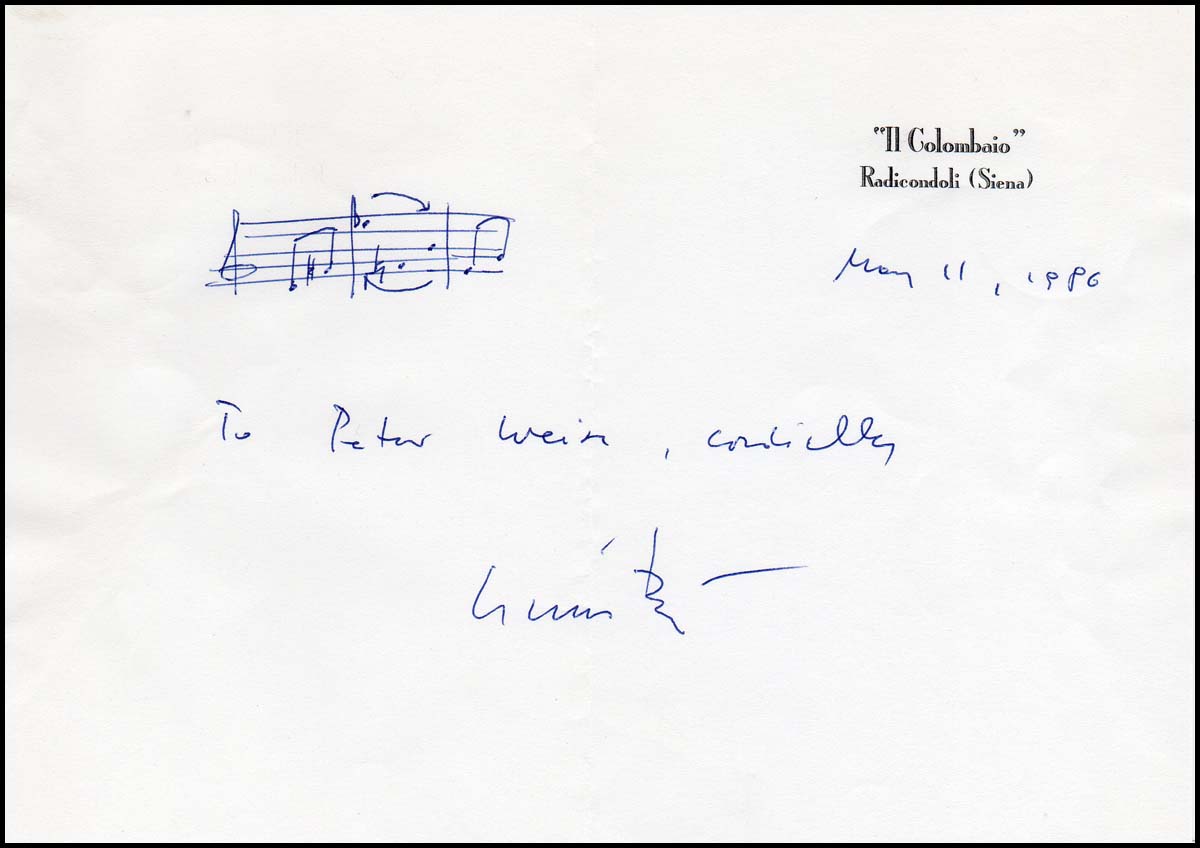 "Il Colombaio"
Radicondoli (Siena)
May 11, 1986
To Peter , cordially